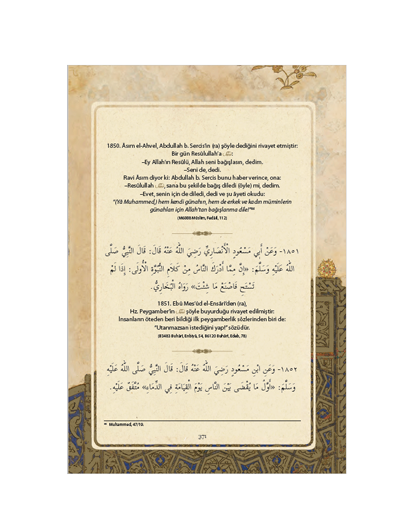 1850. Âsım el-Ahvel, Abdullah b. Sercis'in (ra) şöyle dediğini rivayet etmiştir:
Bir gün Resûlullah'a ﷺ:
–Ey Allah'ın Resûlü, Allah seni bağışlasın, dedim.
–Seni de, dedi.
Ravi Âsım diyor ki: Abdullah b. Sercis bunu haber verince, ona:
–Resûlullah ﷺ, sana bu şekilde bağış diledi (öyle) mi, dedim.
–Evet, senin için de diledi, dedi ve şu âyeti okudu:
"(Yâ Muhammed,) hem kendi günahın, hem de erkek ve kadın müminlerin
günahları için Allah'tan bağışlanma dile!"
Müslim, Fedâil, 112)
١٨٥١- وَعَنْ أَبِي مَسْعُودٍ الْأَنْصَارِيِّ رَضِيَ اللّٰهُ عَنْهُ قَالَ: قَالَ النَّبِيُّ صَلَّى
اللّٰهُ عَلَيْهِ وَسَلَّمَ: «إِنَّ مِمَّا أَدْرَكَ النَّاسُ مِنْ كَلَامِ النُّبُوَّةِ الْأُولَى: إِذَا لَمْ
تَسْتَحِ فَاصْنَعْ مَا شِئْتَ» رَوَاهُ الْبُخَارِيُّ.
1851. Ebû Mes'ûd el-Ensârî'den (ra),
Hz. Peygamber'in ﷺ şöyle buyurduğu rivayet edilmiştir:
İnsanların öteden beri bildiği ilk peygamberlik sözlerinden biri de:
"Utanmazsan istediğini yap!" sözüdür.
(B3483 Buhârî, Enbiyâ, 54, B6120 Buhârî, Edeb, 78)
١٨٥٢- وَعَنِ ابْنِ مَسْعُودٍ رَضِيَ اللّٰهُ عَنْهُ قَالَ: قَالَ النَّبِيُّ صَلَّى اللّٰهُ عَلَيْهِ
وَسَلَّمَ: «أَوَّلُ مَا يُقْضَى بَيْنَ النَّاسِ يَوْمَ الْقِيَامَةِ فِي الدِّمَاءِ» مُتَّفَقٌ عَلَيْهِ.
Muhammed, 47/19.
371